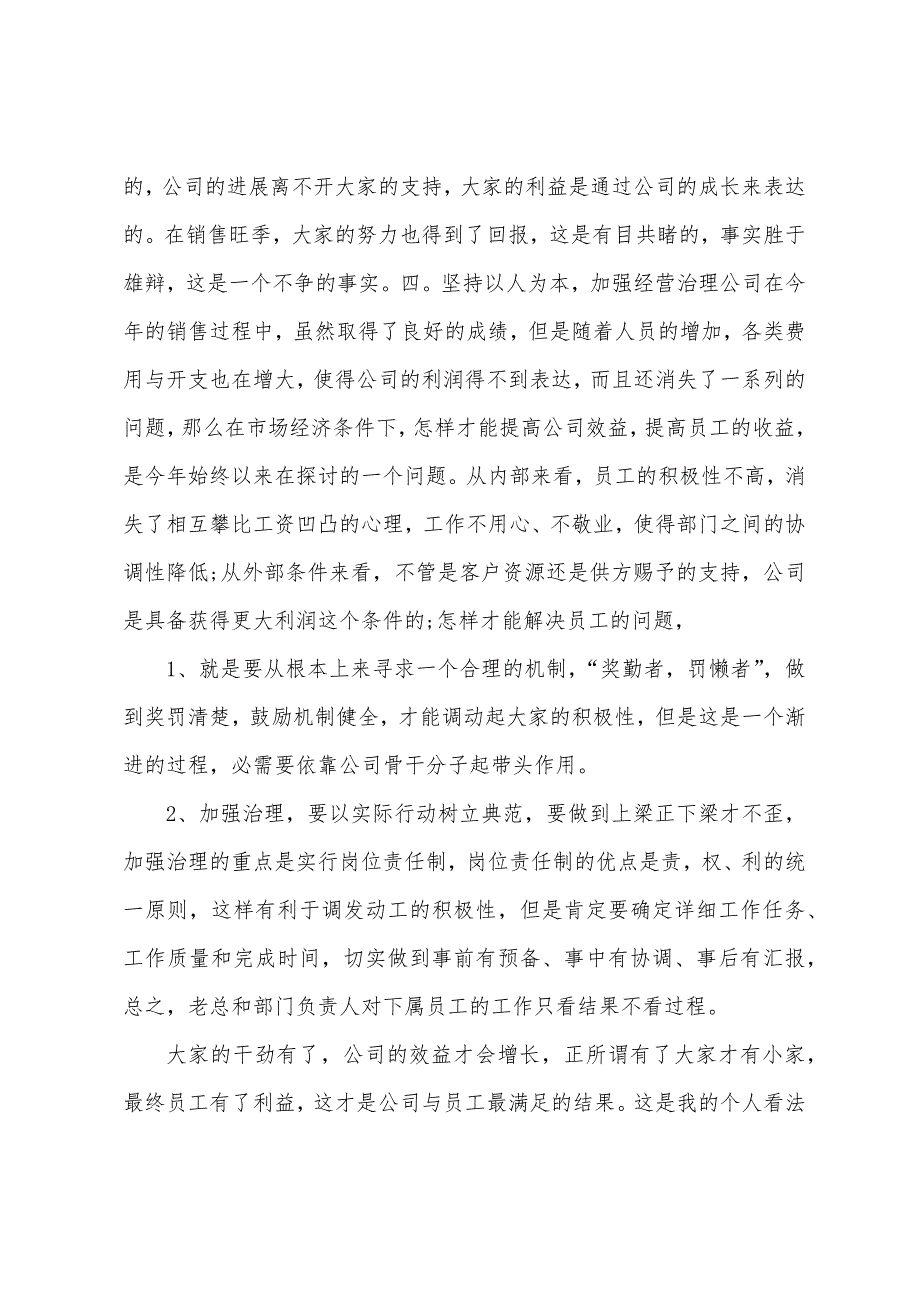 的，公司的进展离不开大家的支持，大家的利益是通过公司的成长来表达
的。在销售旺季，大家的努力也得到了回报，这是有目共睹的，事实胜于
雄辩，这是一个不争的事实。四。坚持以人为本，加强经营治理公司在今
年的销售过程中，虽然取得了良好的成绩，但是随着人员的增加，各类费
用与开支也在增大，使得公司的利润得不到表达，而且还消失了一系列的
问题，那么在市场经济条件下，怎样才能提高公司效益，提高员工的收益，
是今年始终以来在探讨的一个问题。从内部来看，员工的积极性不高，消
失了相互攀比工资凹凸的心理，工作不用心、不敬业，使得部门之间的协
调性降低;从外部条件来看，不管是客户资源还是供方赐予的支持，公司
是具备获得更大利润这个条件的;怎样才能解决员工的问题，
1、就是要从根本上来寻求一个合理的机制，“奖勤者，罚懒者”，做
到奖罚清楚，鼓励机制健全，才能调动起大家的积极性，但是这是一个渐
进的过程，必需要依靠公司骨干分子起带头作用。
2、加强治理，要以实际行动树立典范，要做到上梁正下梁才不歪，
加强治理的重点是实行岗位责任制，岗位责任制的优点是责，权、利的统
一原则，这样有利于调发动工的积极性，但是肯定要确定详细工作任务、
工作质量和完成时间，切实做到事前有预备、事中有协调、事后有汇报，
总之，老总和部门负责人对下属员工的工作只看结果不看过程。
大家的干劲有了，公司的效益才会增长，正所谓有了大家才有小家，
最终员工有了利益，这才是公司与员工最满足的结果。这是我的个人看法